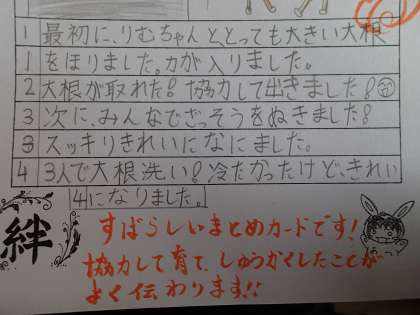 1 最初に、りむちゃんと、とっても大きい大根
1 をほりました。力が入りました。
2 大根が取れた!協力して出きました!
3 次に、みんなでざっそうをぬきました!
3 スッキリきれいになにました。
4 3人で大根洗い!冷たかったけど、きれい
4 になりました。
絆
すばらしいまとめカードです!
協力して育て、しゅうかくしたことが
よく伝わります!!